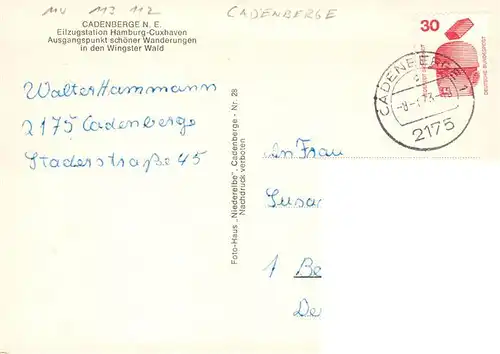 MV 113 112
CADENBERGE
CADENBERGE N. E.
Eilzugstation Hamburg-Cuxhaven
Ausgangspunkt schöner Wanderungen
in den Wingster Wald
Walter Hammann
2175 Cadenberge
Staderstraße 45
Foto-Haus „Niederelbe", Cadenberge - Nr. 28
Nachdruck verboten
30
DEUTSCHE BUNDESPOST
CADENBERGE 1
2175
en Frau
Susa
1 Be
De